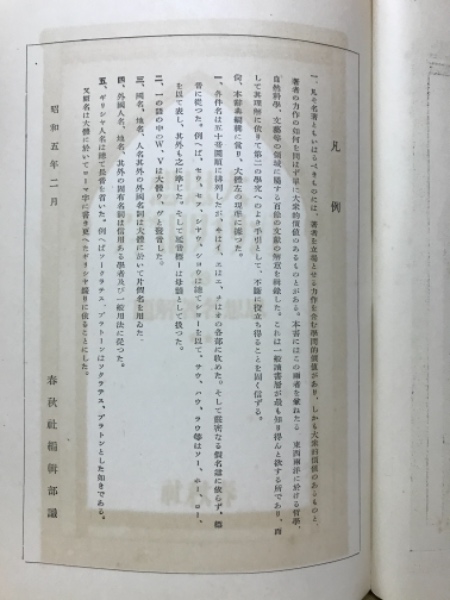 凡例
一、凡そ名著ともいはるべきものには、著者を立場とせる力作を含む學問的價値があり、しかも大衆的價値のあるものと、
著者の力作の如何を問はず單に大衆的價値のあるものとがある。本書にはこの兩者を兼ねたる東西兩洋に於ける哲學、
自然科學、文藝等の領域に關する百餘の文獻の解意を輯錄した。これは一般讀書層が最も知り得んと欲する所であり、而
して其理解に依りて第二の學究へのより手引として、不斷に役立ち得ることを固く信ずる。
尙、本辭典編輯に當り、大體左の規準に據つた。
一、各件名は五十音圖順に排列したが、ヰはイ、ヱはエ、ヲはオの各部に收めた。そして嚴密なる假名遣に依らず、總
音に從つた。例へば、セウ、セフ、シヤウ、シヨウは總てシヨーを以て、サウ、ハウ、ラウ等はソー、ホー、ロー、
を以て表し、其外も之に準じた。そして延音標ーは母韻として扱つた。
二、一の發の中のW、Vは大體ウ、ヴと發音した。
三、國名、地名、人名其外の外國名詞は大體に於いて片假名を用ゐた。
四、外國人名、地名、其外の固有名詞は信用ある學者及び一般用法に從つた。
五、ギリシヤ人名は總て長音を省いた。例へばソークラテス、プラトーンはソクラテス、プラトンとした如きである。
又原名は大體に於いてローマ字に書き更へたギリシヤ綴りに依ることにした。
昭和五年二月
春秋社編輯部識